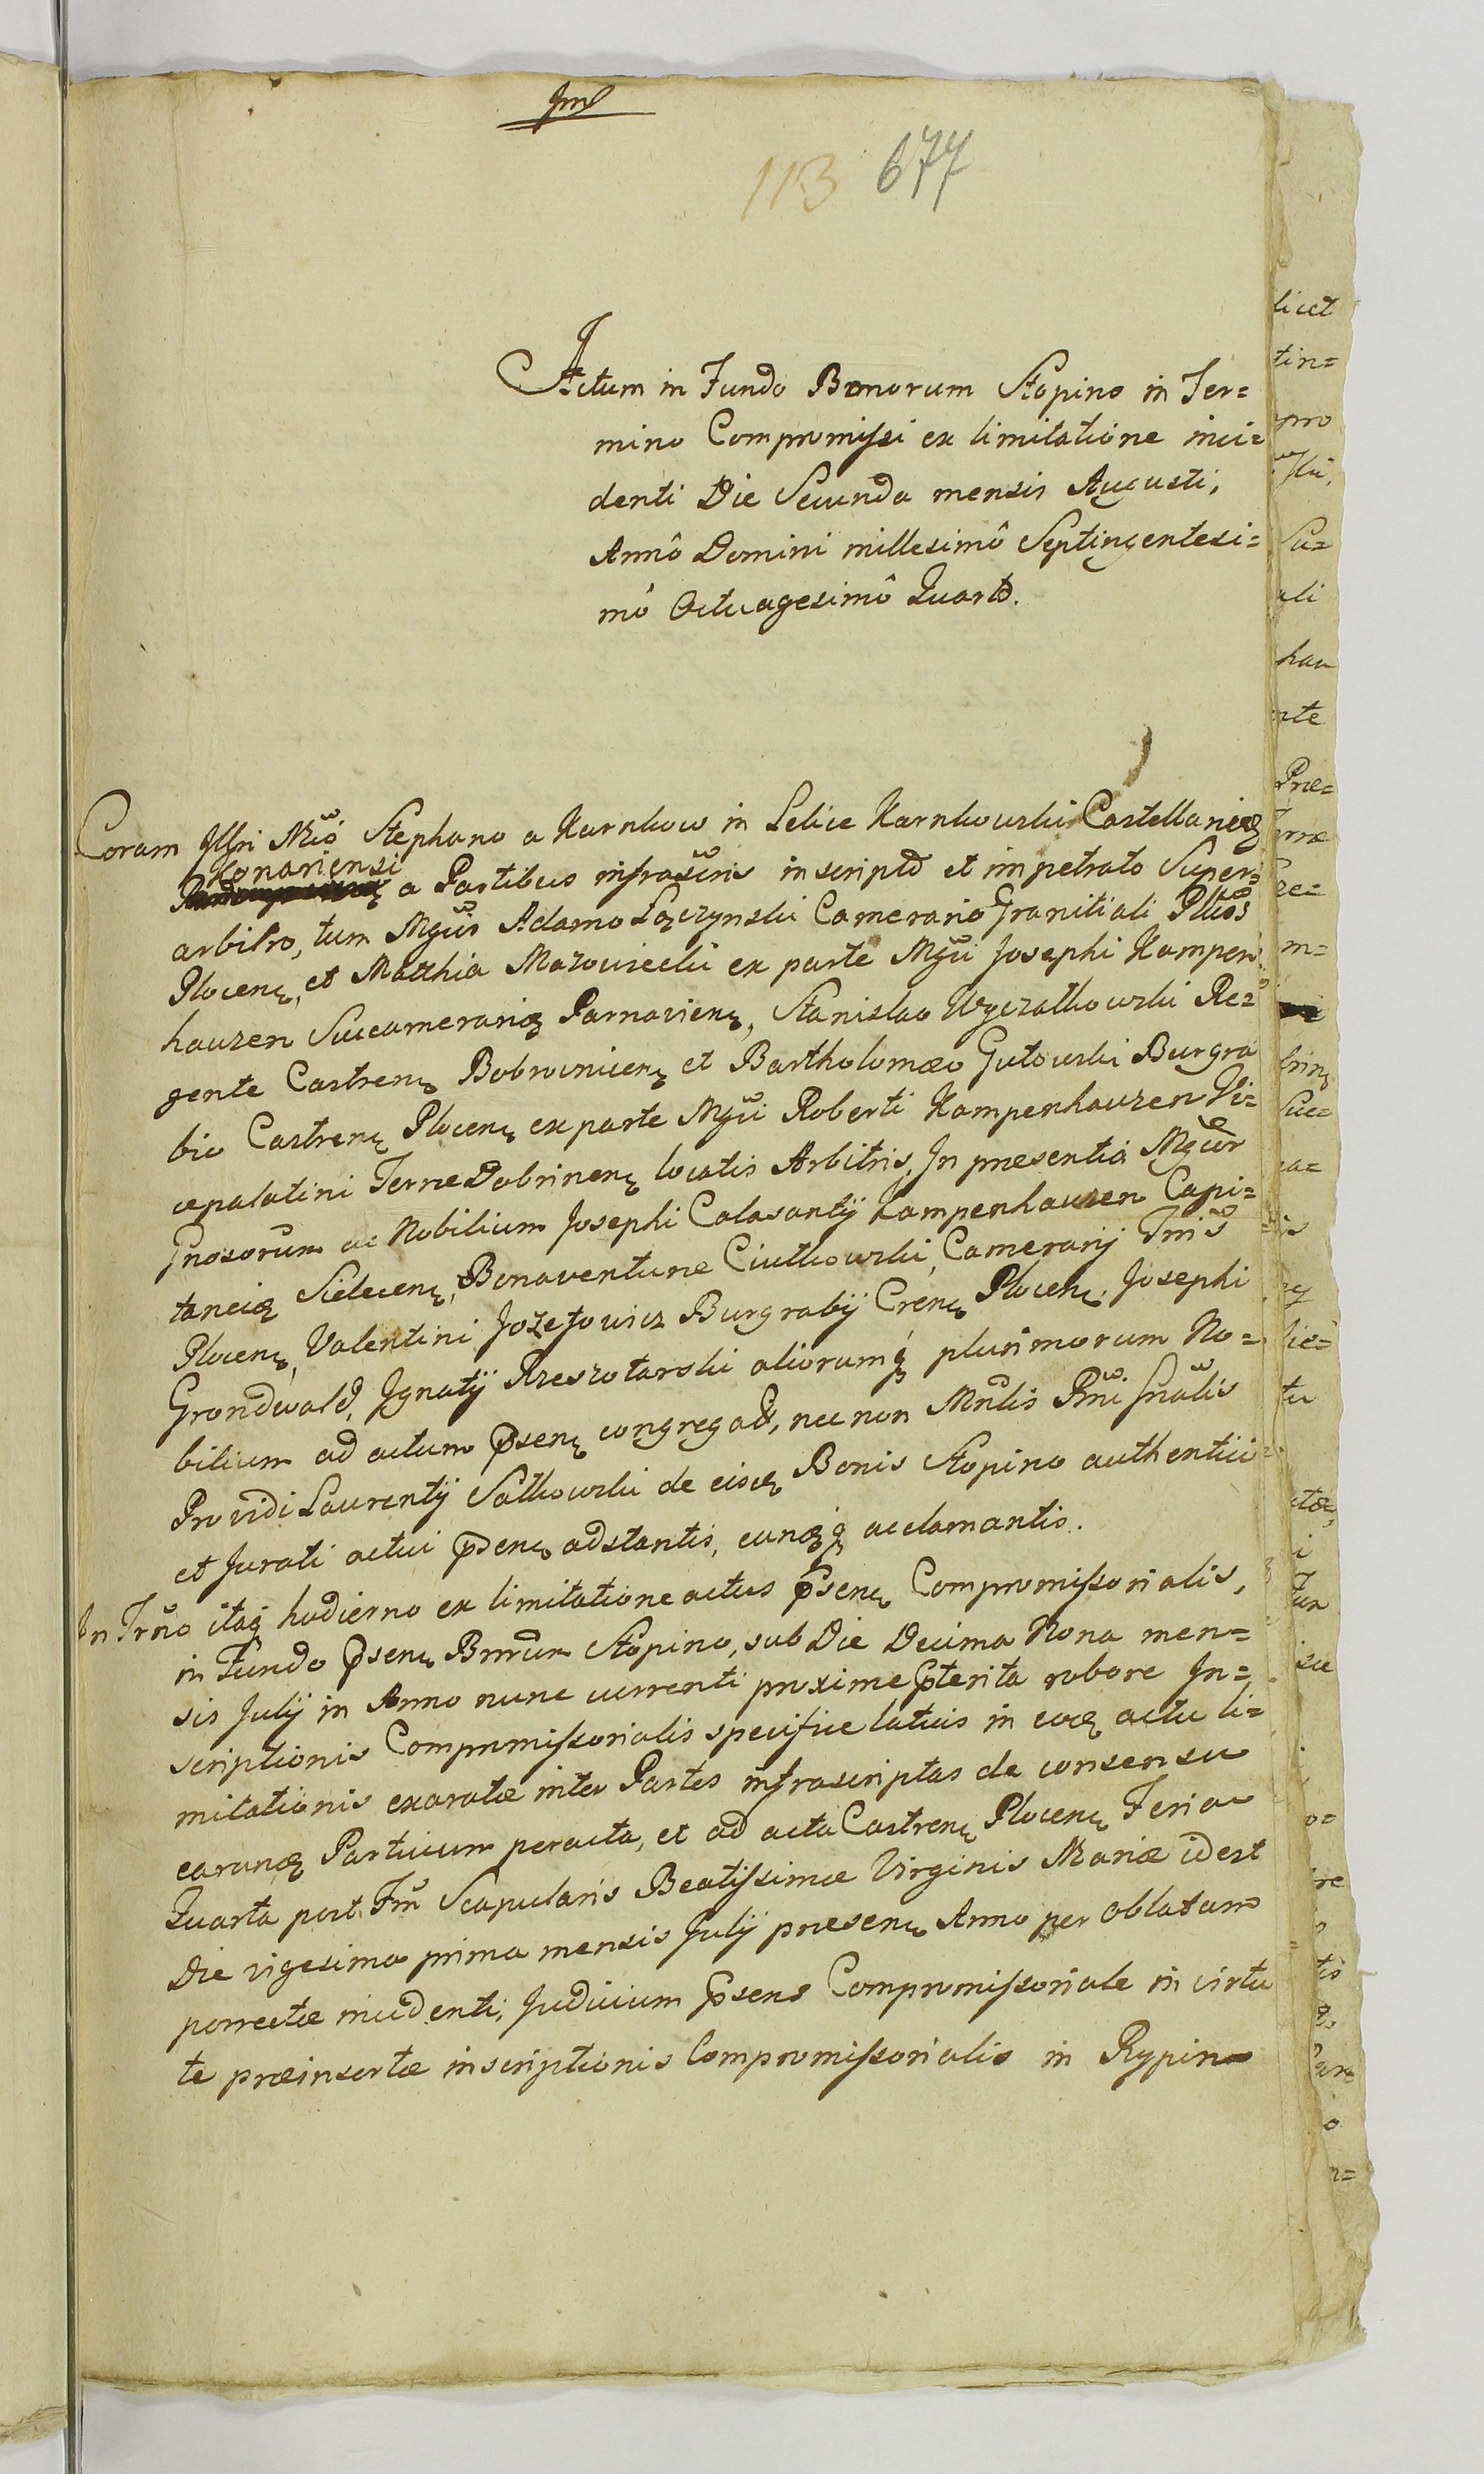 113 677
Actum in Fundo Bonorum Stopino in Ter=
mino Compromissi ex limitatione inci=
denti Die Secunda mensis Augusti,
Annô Domini millesimô Septingentesi=
mô Octuagesimô Quarto.
Coram Stephano a Karnkow in Lelice Karnkowski Castellanieę
Konariensi
a Partibus infrascris inscripto et impetrato Super=
arbitro, tum Mgcis Adamo Łączynski Camerario Granitiali Pltûs
Plocenę, et Matthia Mazowiecki ex parte Mgci Josephi Kampen
hauzen Succamerarię Parnavienę, Stanislao Wyczałkowski Re=
gente Castrenę Bobrownicenę et Bartholomæo Gutowski Burgra
bio Castrenę Plocenę ex parte Mgci Roberti Kampenhauzen Vi=
cepalatini Terræ Dobrinenę locatis Arbitris, In præsentia Mgcor
Gnosorum ac Nobilium Josephi Calasantij Kampenhauzen Capi=
taneię Sielecenę, Bonaventuræ Ciutkowski, Camerarij Tris
Plocenę, Valentini Jozefowicz Burgrabij Crenę Plocenę, Josephi
Grondwald, Ignatij Rzeszotarski aliorumq plurimorum No=
bilium ad actum psenę congregat, nec non Mnlis Rni Gnalis
Providi Laurentij Sałkowski de eisdę Bonis Stopino authentici
et Jurati actui psenę adstantis, eundęq acclamantis.
In Trno itaq hodierno ex limitatione actus psenę Compromissorialis,
in Fundo psenę Bnrum Stopino, sub Die Decima Nona men=
sis Julij in Anno nunc currenti proxime pterita robore In=
scriptionis Compromissorialis specifice latius in eodę actu li=
mitationis exaratæ inter Partes infrascriptas de consensu
earundę Partium peracta, et ad acta Castrenę Plocenę Feria
Quarta post Fm Scapularis Beatissimæ Virginis Mariæ idest
Die vigesima prima mensis Julij præsenę Anno per oblatam
porrectæ incidenti, Judicium psens Compromissoriale in virtu
te præinsertæ inscriptionis Compromissorialis in Rypin